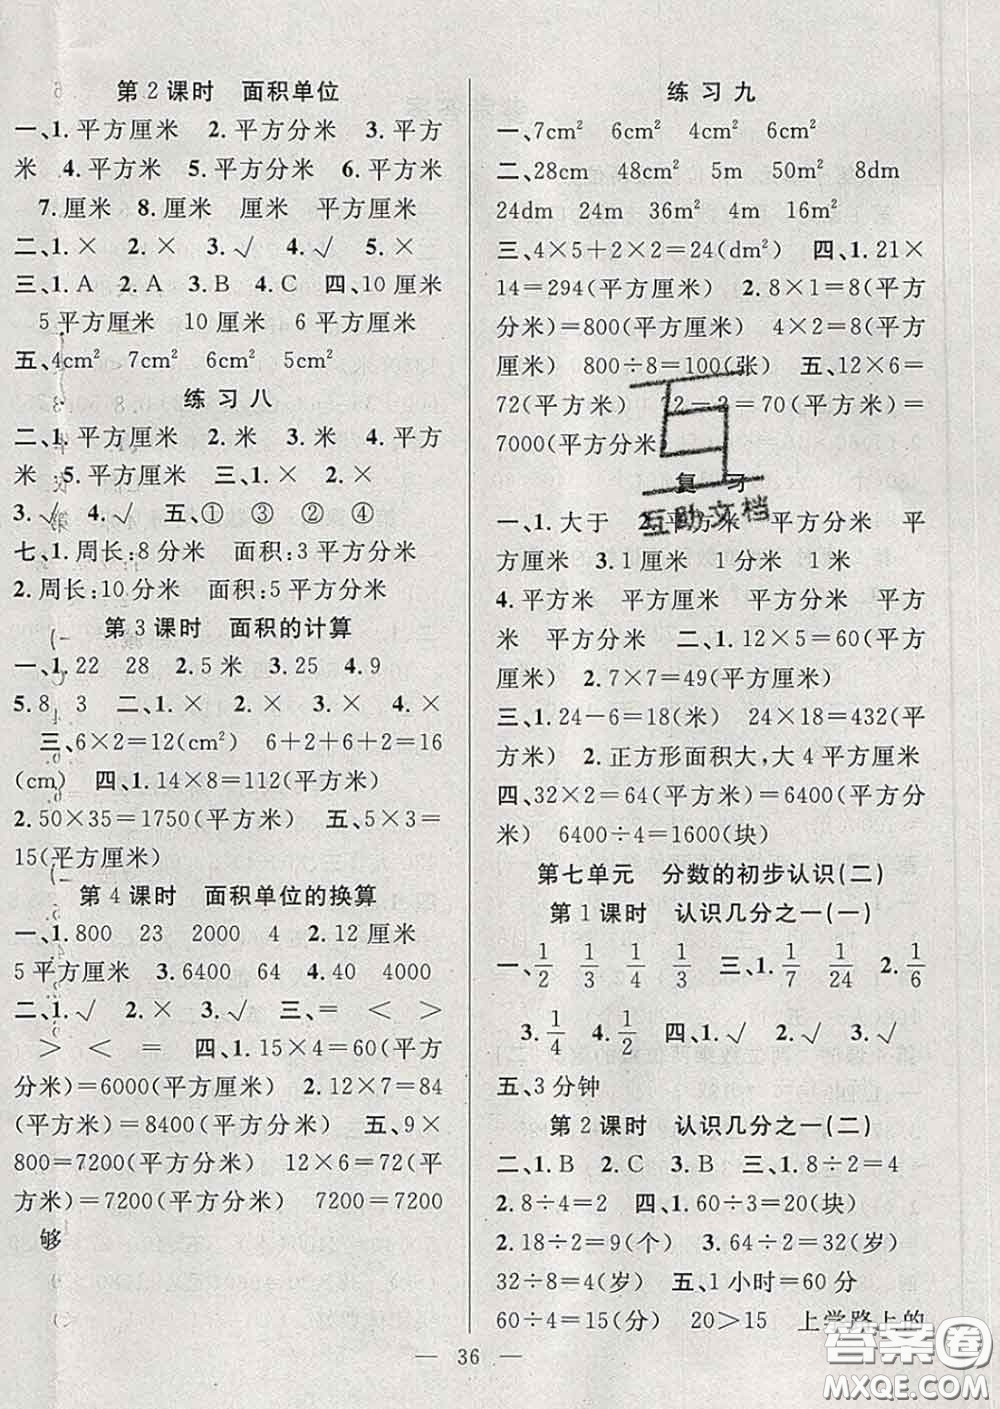 第2课时　面积单位
一、1.平方厘米　2.平方分米　3.平方
米　4.平方米　5.平方分米　6.平方米
7.厘米　8.厘米　厘米　平方厘米
二、1.×　2.×　3.√　4.√　5.×
三、1.A　2.A　3.B　4.C　四、10厘米
5平方厘米　10厘米　6平方厘米
五、4cm²　7cm²　6cm²　5cm²
练习八
二、1.平方厘米　2.米　3.米　4.平方
米　5.平方分米　三、1.×　2.×
3.√　4.√　五、①　③　②　④
七、1.周长:8分米　面积:3平方分米
2.周长:10分米　面积:5平方分米
第3课时　面积的计算
一、1.22　28　2.5米　3.25　4.9
5.8　3　二、1.×　2.×　3.×　4.×
三、6×2=12(cm²)　6+2+6+2=16
(cm)　四、1.14×8=112(平方米)
2.50×35=1750(平方米)　五、5×3=
15(平方厘米)
第4课时　面积单位的换算
一、1.800　23　2000　4　2.12厘米
5平方厘米　3.6400　64　4.40　4000
二、1.√　2.×　3.√　三、=　<　>
>　<　=　四、1.15×4=60(平方
分米)=6000(平方厘米)　2.12×7=84
(平方分米)=8400(平方分米)　五、9×
800=7200(平方分米)　12×6=72(平
方米)=7200(平方分米)　7200=7200
够
练习九
一、7cm²　6cm²　4cm²　6cm²
二、28cm　48cm²　5m　50m²　8dm
24dm　24m　36m²　4m　16m²
三、4×5+2×2=24(dm²)　四、1.21×
14=294(平方厘米)　2.8×1=8(平方
分米)=800(平方厘米)　4×2=8(平方
厘米)　800÷8=100(张)　五、12×6=
72(平方米)　72-2=70(平方米)=
7000(平方分米)
复习
一、1.大于　2.平方米　平方分米　平
方厘米　3.1厘米　1分米　1米
4.平方米　平方厘米　平方分米　平方
米　平方分米　二、1.12×5=60(平方
厘米)　2.7×7=49(平方厘米)
三、1.24-6=18(米)　24×18=432(平
方米)　2.正方形面积大,大4平方厘米
四、32×2=64(平方米)=6400(平方分
米)　6400÷4=1600(块)
第七单元　分数的初步认识(二)
第1课时　认识几分之一(一)
一、1/2　1/3　1/4　1/3　三、1.1/7　1/24　2.1/6
3.1/4　4.1/2　四、1.√　2.√　3.√
五、3分钟
第2课时　认识几分之一(二)
二、1.B　2.C　3.B　三、1.8÷2=4
2.8÷4=2　四、1.60÷3=20(块)
2.18÷2=9(个)　3.64÷2=32(岁)
32÷8=4(岁)　五、1小时=60分
60÷4=15(分)　20>15　上学路上的
36
互助文档
答案圈
MXQE.COM